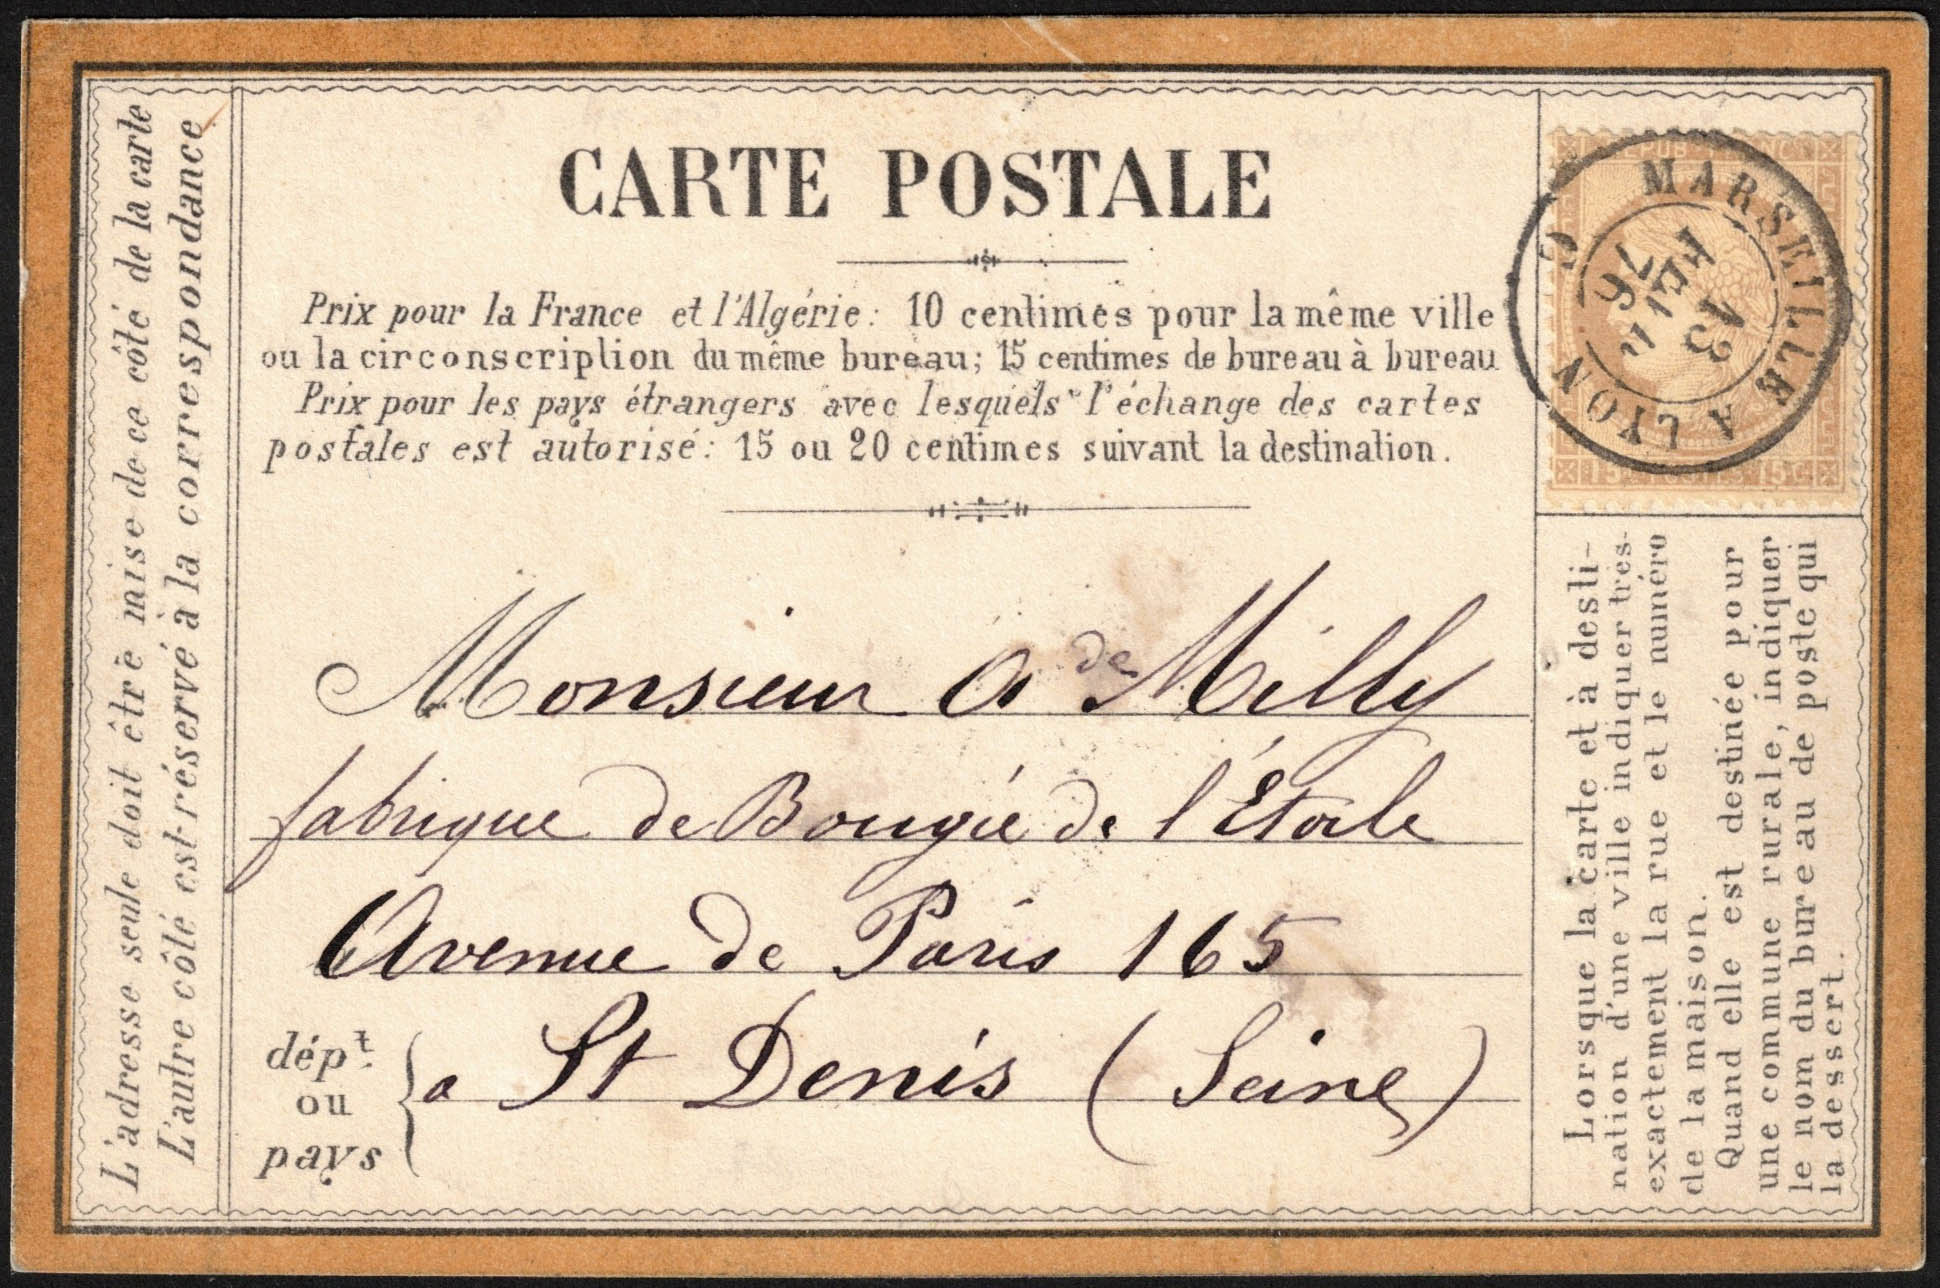 L'adresse seule doit être mise de ce côté de la carte
L'autre côté est réservé à la correspondance
CARTE POSTALE
Prix pour la France et l'Algérie: 10 centimes pour la même ville
ou la circonscription du même bureau; 15 centimes de bureau à bureau
Prix pour les pays étrangers avec lesquels l'échange des cartes
postales est autorisé: 15 ou 20 centimes suivant la destination.
REPUB FRANC
15 POSTES 15C
MARSEILLE A LYON
13
FEVR
76
Monsieur A de Milly
fabrique de Bougie de l'Étoile
Avenue de Paris 165
dépt ou pays
a St Denis (Seine)
Lorsque la carte et à desti-
nation d'une ville indiquer très-
exactement la rue et le numéro
de la maison.
Quand elle est destinée pour
une commune rurale, indiquer
le nom du bureau de poste qui
la dessert.